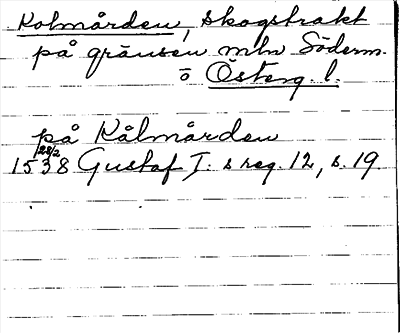 Kolmården, skogstrakt
på gränsen mln Söderm.
o Österg. l.
på Kålmården
28/2
1538 Gustaf I:s reg. 12, s. 19